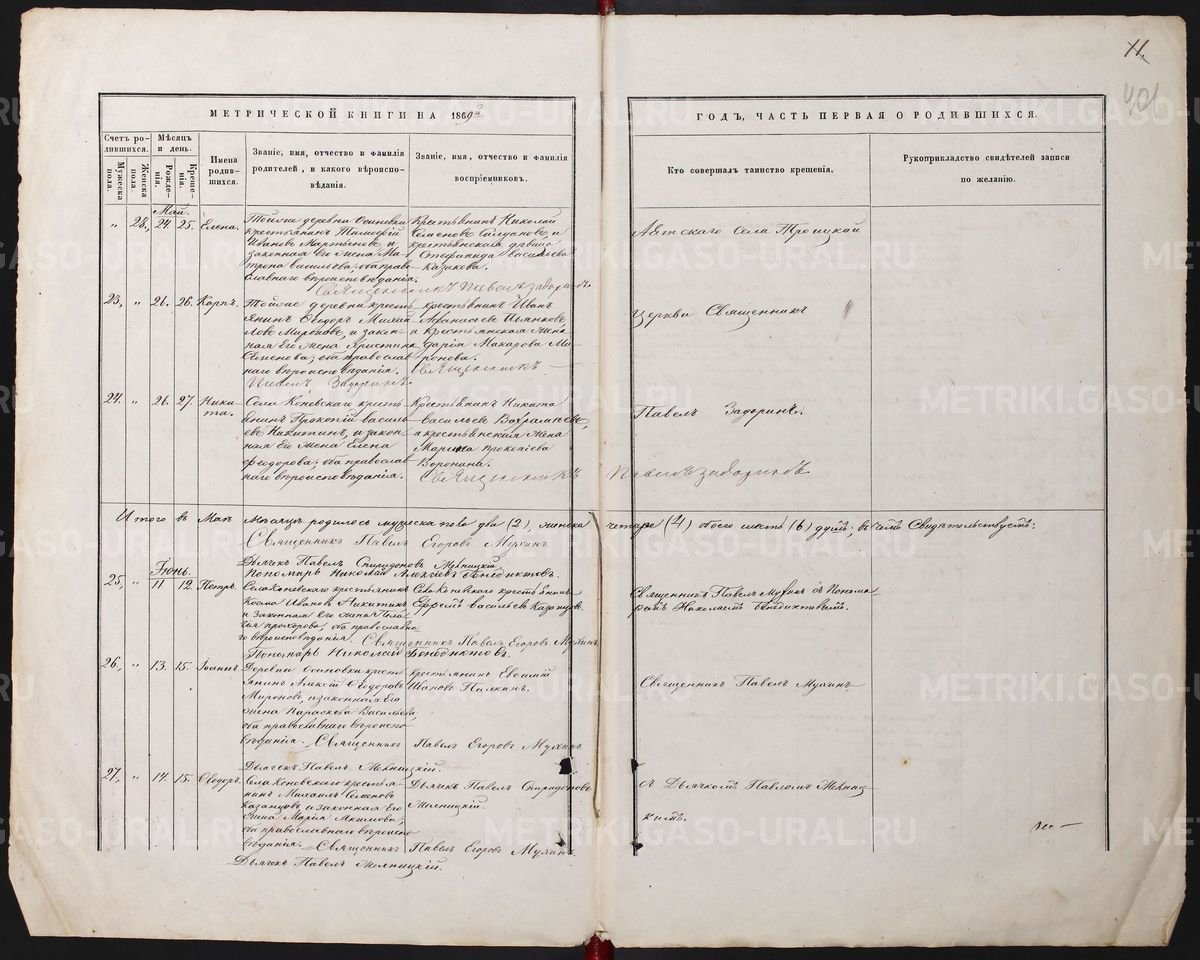 11.
401
МЕТРИЧЕСКОЙ КНИГИ НА 1869й
ГОДЪ, ЧАСТЬ ПЕРВАЯ О РОДИВШИХСЯ.
Счетъ родившихся.
Мѣсяцъ и день.
Мужеска пола.
Женска пола.
Рожденія.
Крещенія.
Имена родившихся.
Званіе, имя, отчество и фамилія
родителей, и какого вѣроиспо-
вѣданія.
Званіе, имя, отчество и фамилія
воспріемниковъ.
Кто совершалъ таинство крещенія.
Рукоприкладство свидѣтелей записи
по желанію.
Май.
„ 28, 24. 25. Елена.
Тойже деревни Осиновки
крестьянинъ Тимофей
Ивановъ Мартыновъ, и
законная его жена Ма-
трона Васильева; оба право-
славнаго вѣроисповѣданія.
Крестьянинъ Николай
Семеновъ
крестьянская дѣвица
Стефанида Васильева
Казакова.
Священникъ Павелъ Задоринъ
Аятскаго Села Троицкой
23, „ 26. 26. Карпъ.
Тойже деревни кресть-
янинъ Ѳеодоръ Михаи-
ловъ Мироновъ, и закон-
ная Его жена Христина
Семенова; оба православ-
наго вѣроисповѣданія.
Крестьянинъ Иванъ
Аѳанасьевъ Пьянковъ,
и крестьянская жена
Дарія Макарова Ми-
ронова.
Священникъ
Павелъ Задоринъ.
Церкви Священникъ
24. „ 26. 27. Ники-
та.
Села Коневскаго кресть-
янинъ Прокопій Василь-
евъ Никитинъ, и закон-
ная Его жена Елена
Ѳеодорова; оба православ-
наго вѣроисповѣданія.
Крестьянинъ Никита
Васильевъ
а крестьянская жена
Марина Прокопіева
Воронина.
Священникъ
Павелъ Задоринъ.
Павелъ Задоринъ
Итого въ Маѣ Мѣсяцѣ родилось мужеска пола два (2), женска четыре (4) обоего шесть (6) душъ; въ чемъ Свидѣтельствуетъ:
Священникъ Павелъ Егоровъ Мухинъ.
Дьячекъ Павелъ Спиридоновъ Мѣлницкій.
Пономарь Николай Алексѣевъ Бенедиктовъ.
Іюнь.
25, „ 11 12. Петръ.
Села Коневскаго крестьянинъ
Косма Ивановъ Никитинъ
и Законная Его жена Пела-
гія Прохорова; оба православна-
го вѣроисповѣданія.
Села Коневскаго крестьянинъ
Ефремъ Васильевъ Казанцовъ.
Священникъ Павелъ Егоровъ Мухинъ
Пономарь Николай Бенедиктовъ.
Священникъ Павелъ Мухинъ съ Понома-
ремъ Николаемъ Бенедиктовымъ.
26, „ 13. 15. Іоаннъ.
Деревни Осиновки кресть-
янинъ Алексѣй Ѳеодоровъ
Мироновъ, и законная Его
жена Параскева Васильева;
оба православнаго вѣроиспо-
вѣданія.
Крестьянинъ Евѳимій
Ивановъ Палкинъ.
Священникъ Павелъ Егоровъ Мухинъ
Дьячекъ Павелъ Мѣлницкій.
Священникъ Павелъ Мухинъ
27, „ 14. 15. Ѳеодоръ.
Села Коневскаго крестья-
нинъ Михаилъ Семеновъ
Казанцовъ, и законная Его
жена Марія Акимова;
оба православнаго вѣроиспо-
вѣданія.
Дьячекъ Павелъ Спиридоновъ
Мѣлницкій.
Священникъ Павелъ Егоровъ Мухинъ.
Дьячекъ Павелъ Мѣлницкій.
съ Дьячкомъ Павломъ Мѣлниц-
кимъ.
METRIKI.GASO-URAL.RU